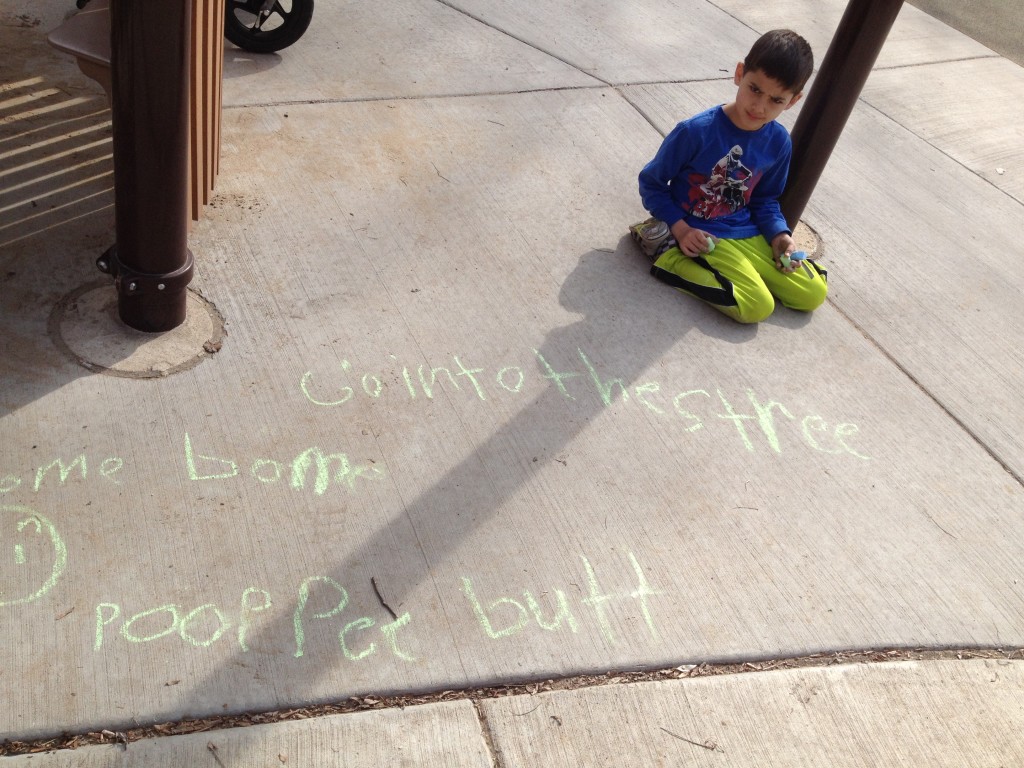 Go into the stree
ome bome
PooPPer butt